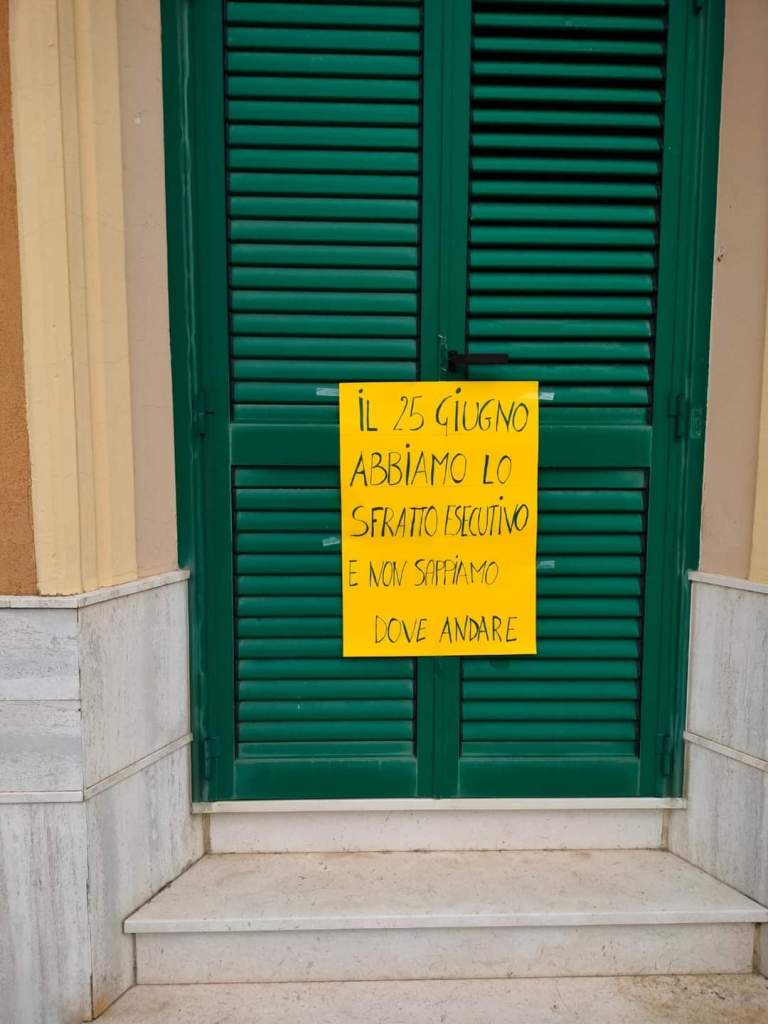 IL 25 GIUGNO
ABBIAMO LO
SFRATTO ESECUTIVO
E NON SAPPIAMO
DOVE ANDARE